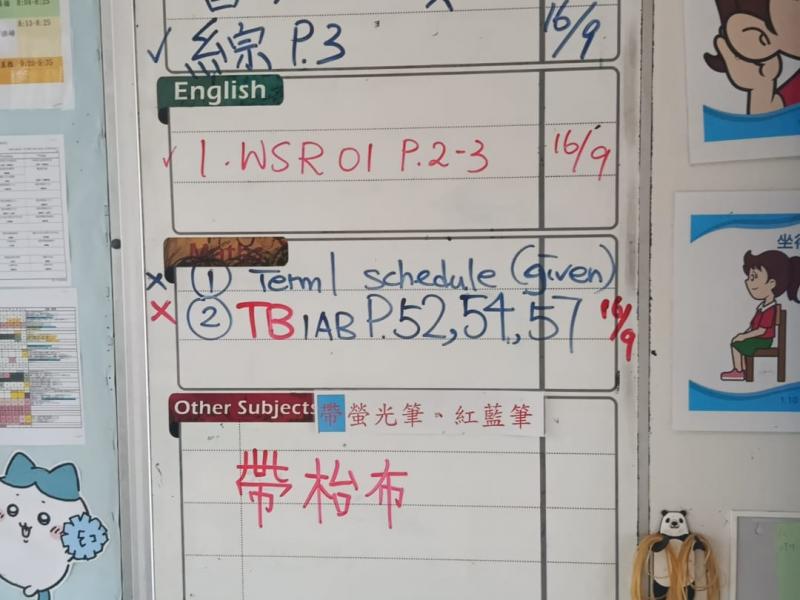 ✓ 綜 P.3 16/9
English
✓ 1. WSR 01 P.2-3 16/9
Maths
× ① Term 1 schedule (given)
× ② TB 1AB P.52,54,57 16/9
Other Subjects 帶螢光筆、紅藍筆
帶枱布
坐
1:10